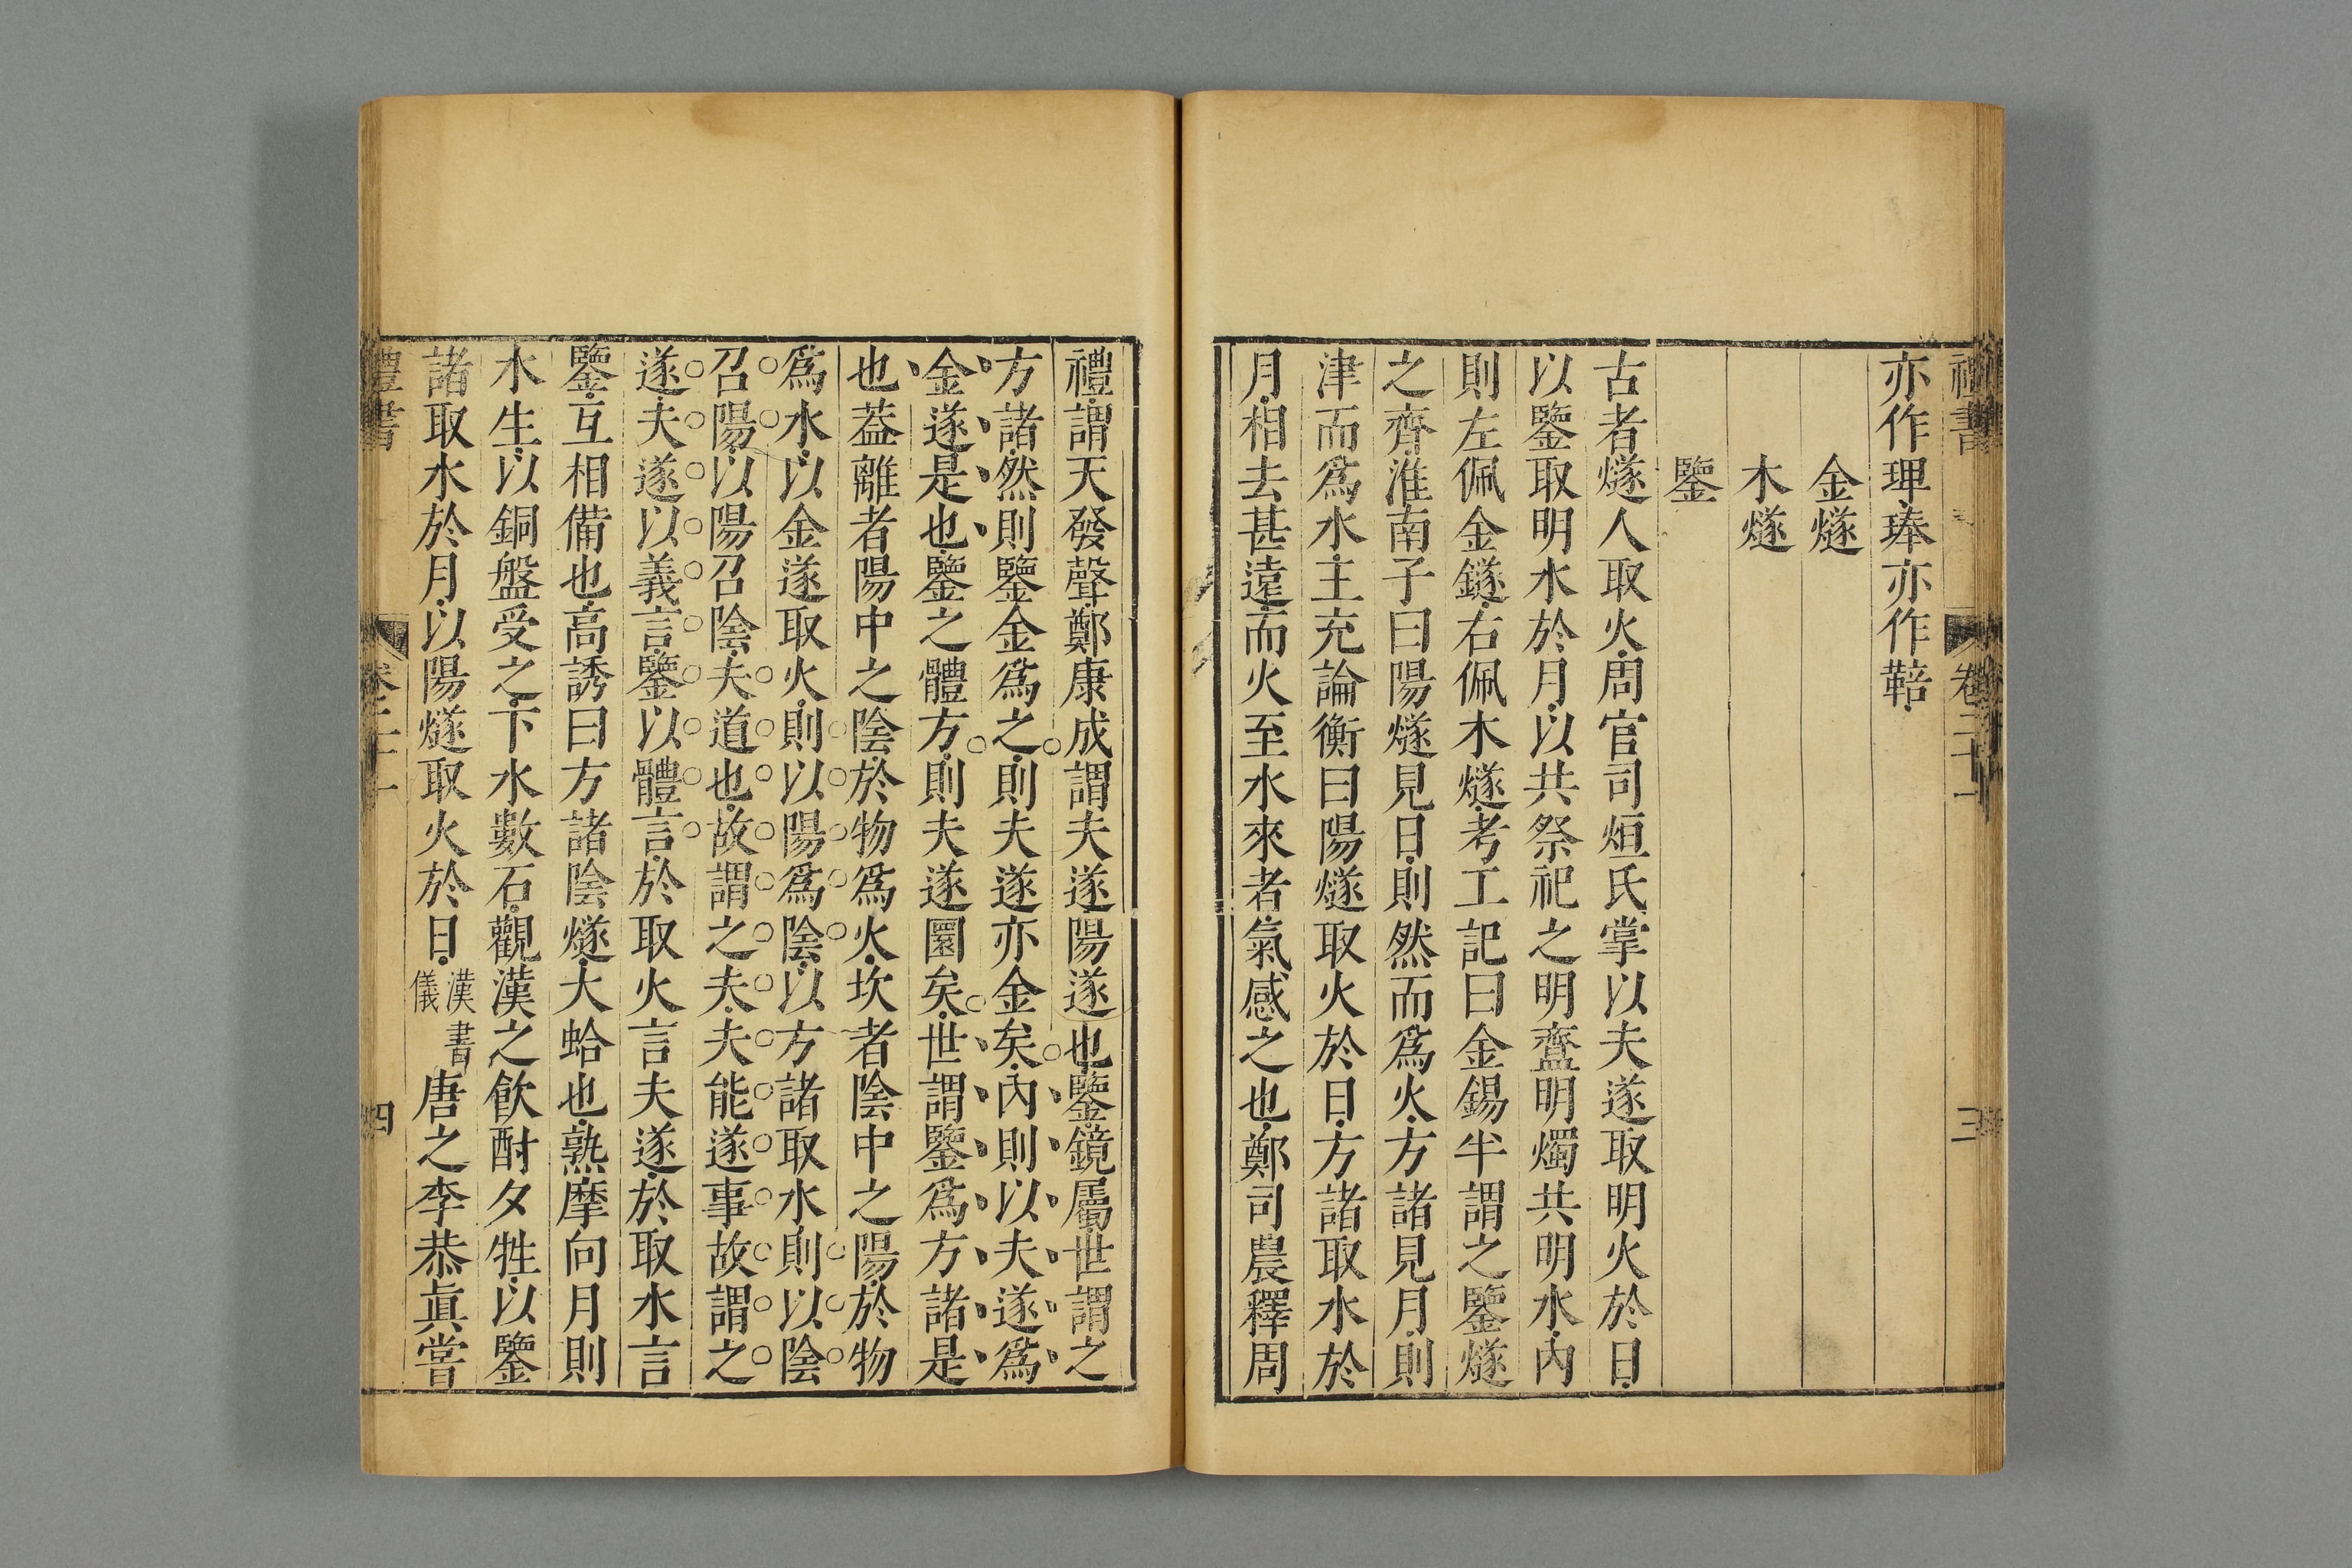 禮書
卷二十一
三
亦作琕琫亦作鞛
金燧
木燧
鑒
古者燧人取火周官司烜氏掌以夫遂取明火於日
以鑒取明水於月以共祭祀之明齍明燭共明水內
則左佩金鐩右佩木燧考工記曰金錫半謂之鑒燧
之齊淮南子曰陽燧見日則然而爲火方諸見月則
津而爲水王充論衡曰陽燧取火於日方諸取水於
月相去甚遠而火至水來者氣感之也鄭司農釋周
禮謂天發聲鄭康成謂夫遂陽遂也鑒鏡屬世謂之
方諸然則鑒金爲之則夫遂亦金矣內則以夫遂爲
金遂是也鑒之體方則夫遂圜矣世謂鑒爲方諸是
也葢離者陽中之陰於物爲火坎者陰中之陽於物
爲水以金遂取火則以陽爲陰以方諸取水則以陰
召陽以陽召陰夫道也故謂之夫夫能遂事故謂之
遂夫遂以義言鑒以體言於取火言夫遂於取水言
鑒互相備也高誘曰方諸陰燧大蛤也熟摩向月則
水生以銅盤受之下水數石觀漢之飮酎夕牲以鑒
諸取水於月以陽燧取火於日漢書儀唐之李恭眞嘗
禮書
卷二十一
四